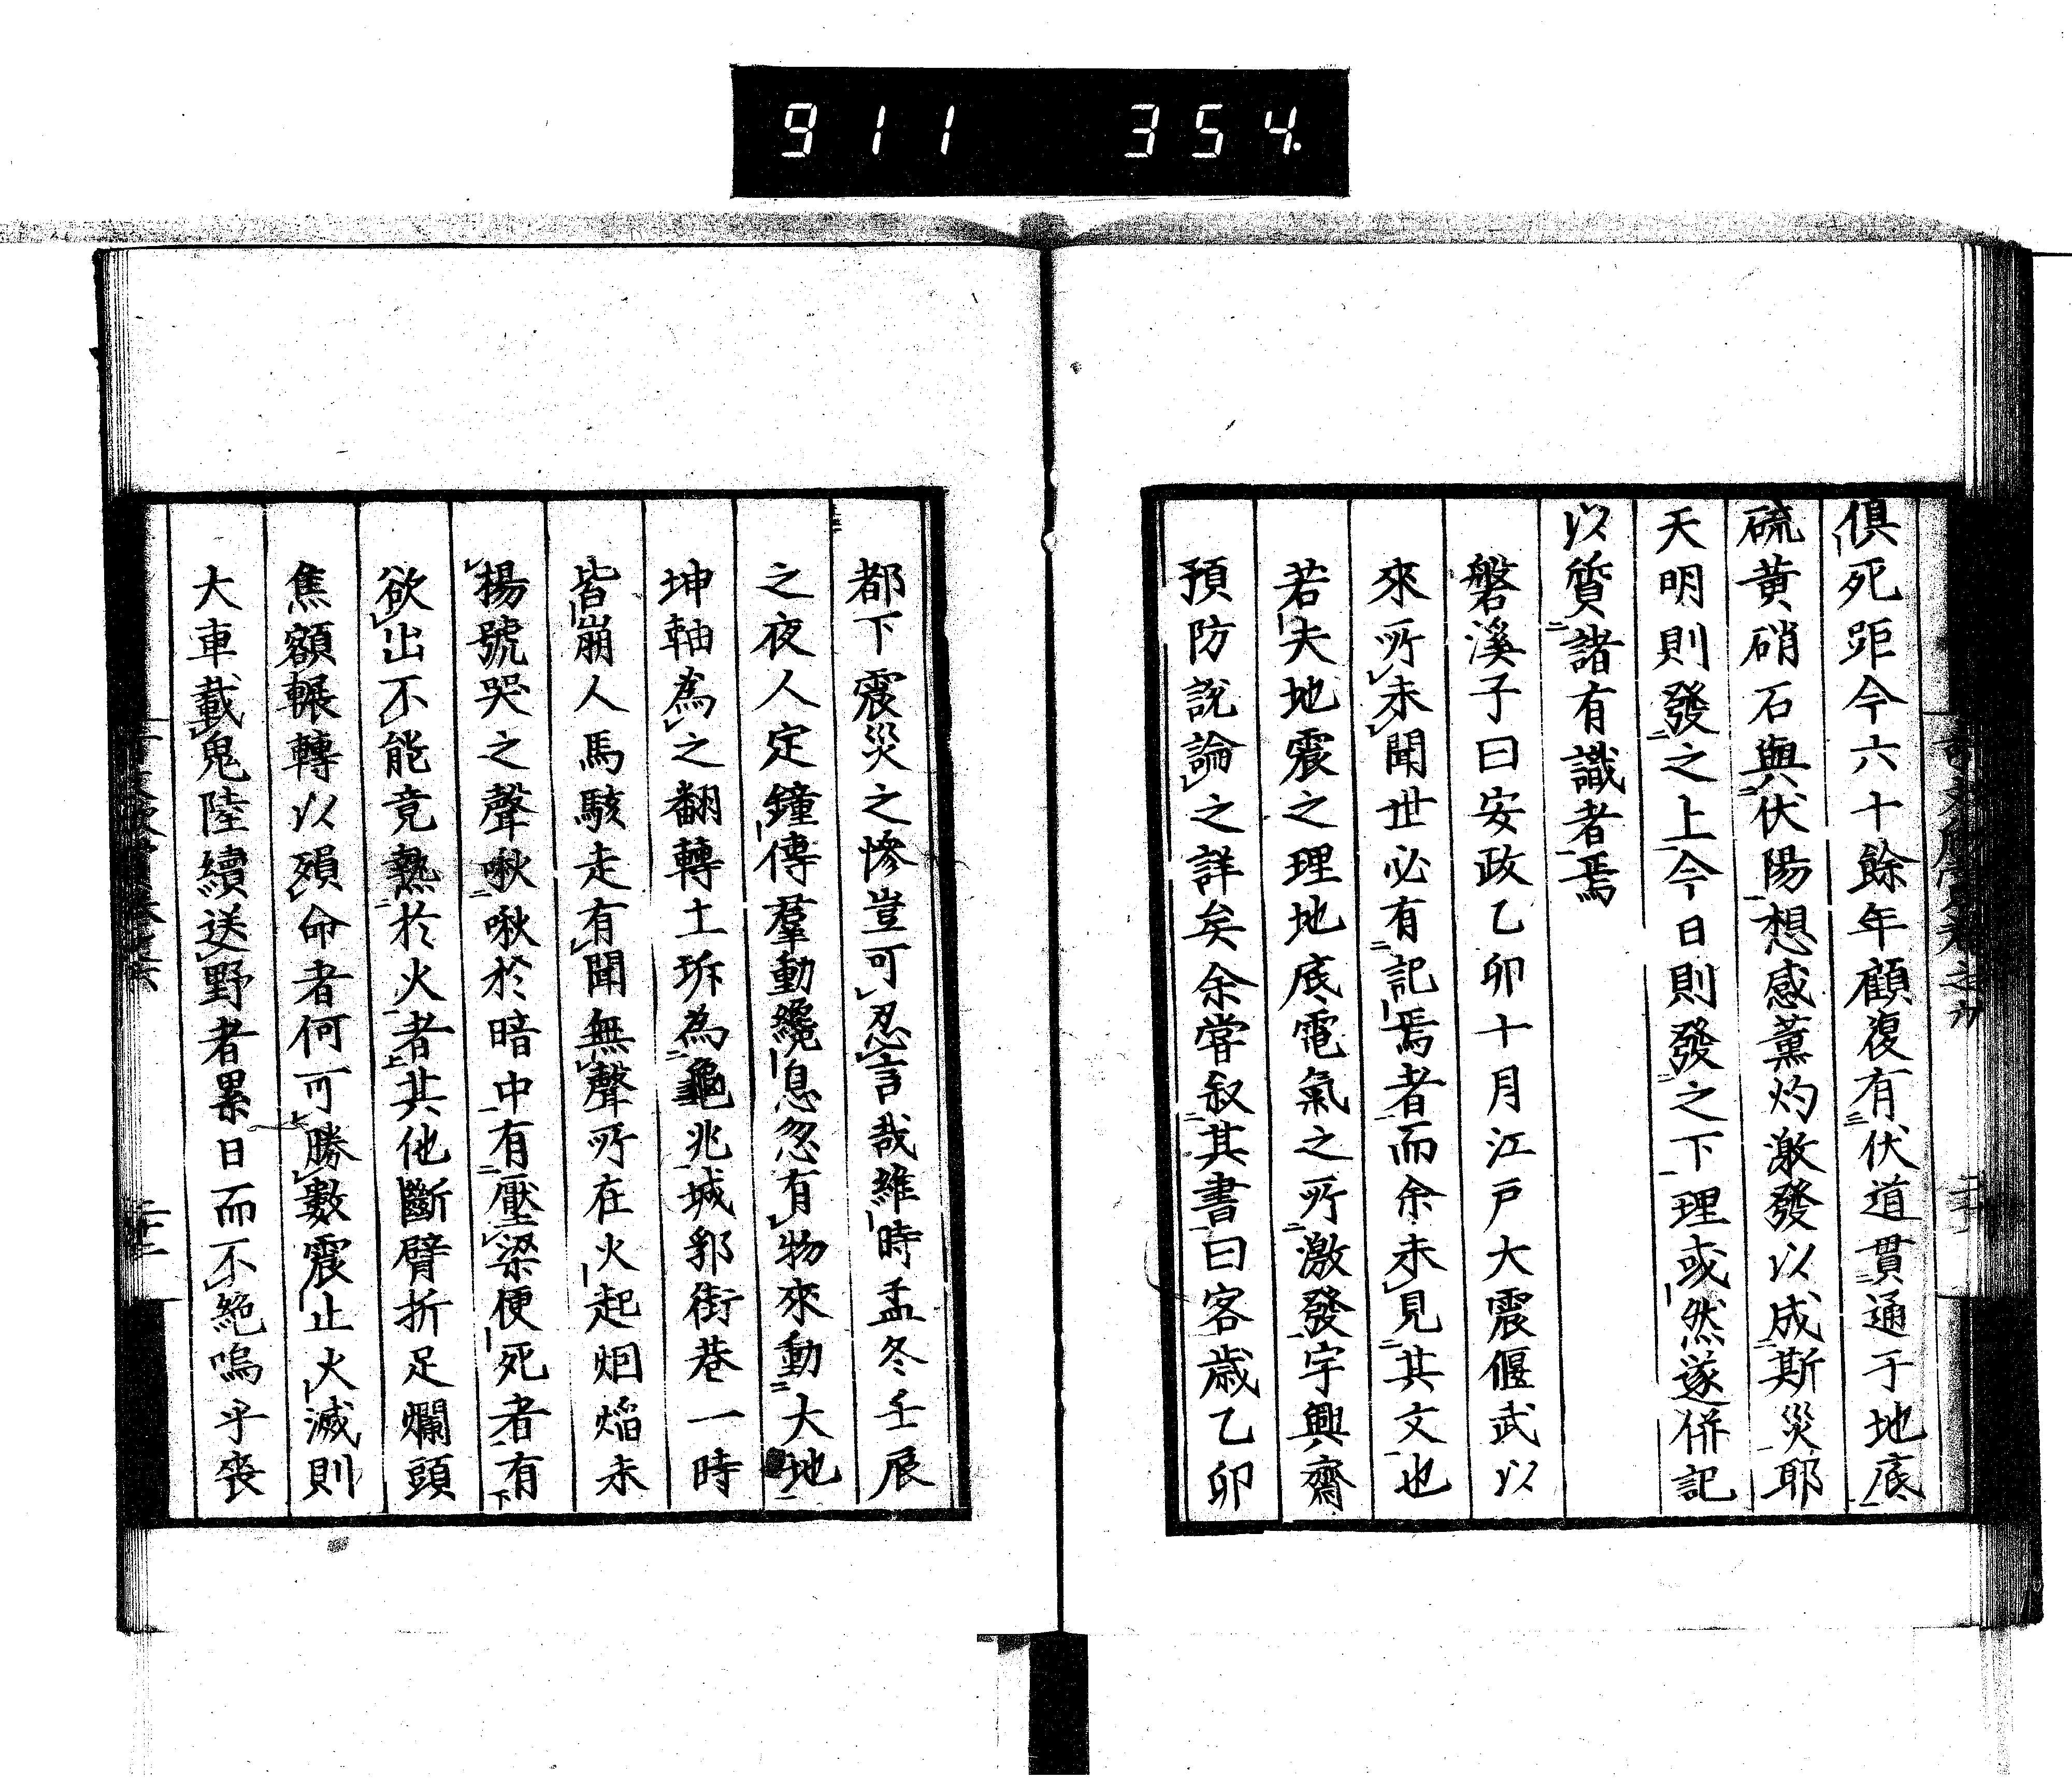 911 354.
俱死距今六十餘年顧復有伏道貫通于地底
硫黄硝石與伏陽想感薰灼激發以成斯災耶
天明則發之上今日則發之下理或然遂併記
以質諸有識者焉
磐溪子曰安政乙卯十月江戸大震偃武以
來所未聞世必有記焉者而余未見其文也
若夫地震之理地底電氣之所激發宇興齋
預防說論之詳矣余嘗叙其書曰客歳乙卯
都下震災之慘豈可忍言哉維時孟冬壬辰
之夜人定鐘傳羣動纔息忽有物來動大地
坤軸為之翻轉土坼為龜兆城郭街巷一時
皆崩人馬駭走有聞無聲所在火起烟焔未
揚號哭之聲啾啾於暗中有壓梁便死者有
欲出不能竟熟於火者其他斷臂折足爛頭
焦額輾轉以殞命者何可勝數震止火滅則
大車載鬼陸續送野者累日而不絶嗚乎喪